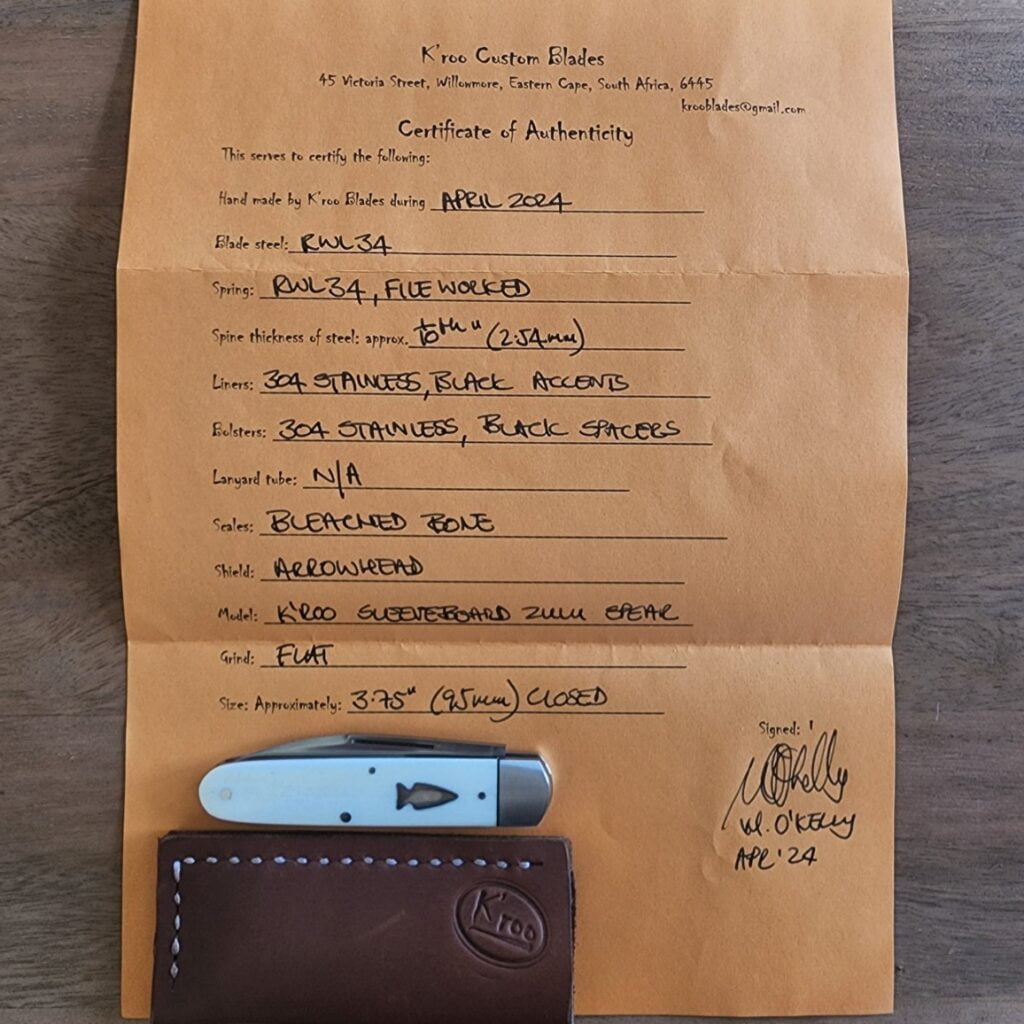 K'roo Custom Blades
45 Victoria Street, Willowmore, Eastern Cape, South Africa, 6445
krooblades@gmail.com
Certificate of Authenticity
This serves to certify the following:
Hand made by K'roo Blades during APRIL 2024
Blade steel: RWL34
Spring: RWL34, FILE WORKED
Spine thickness of steel: approx. 1/10th" (2.54mm)
Liners: 304 STAINLESS, BLACK ACCENTS
Bolsters: 304 STAINLESS, BLACK SPACERS
Lanyard tube: N/A
Scales: BLEACHED BONE
Shield: ARROWHEAD
Model: K'ROO SLEEVEBOARD ZULU SPEAR
Grind: FLAT
Size: Approximately: 3.75" (95mm) CLOSED
Signed:
O'KELLY
APR '24
K'roo